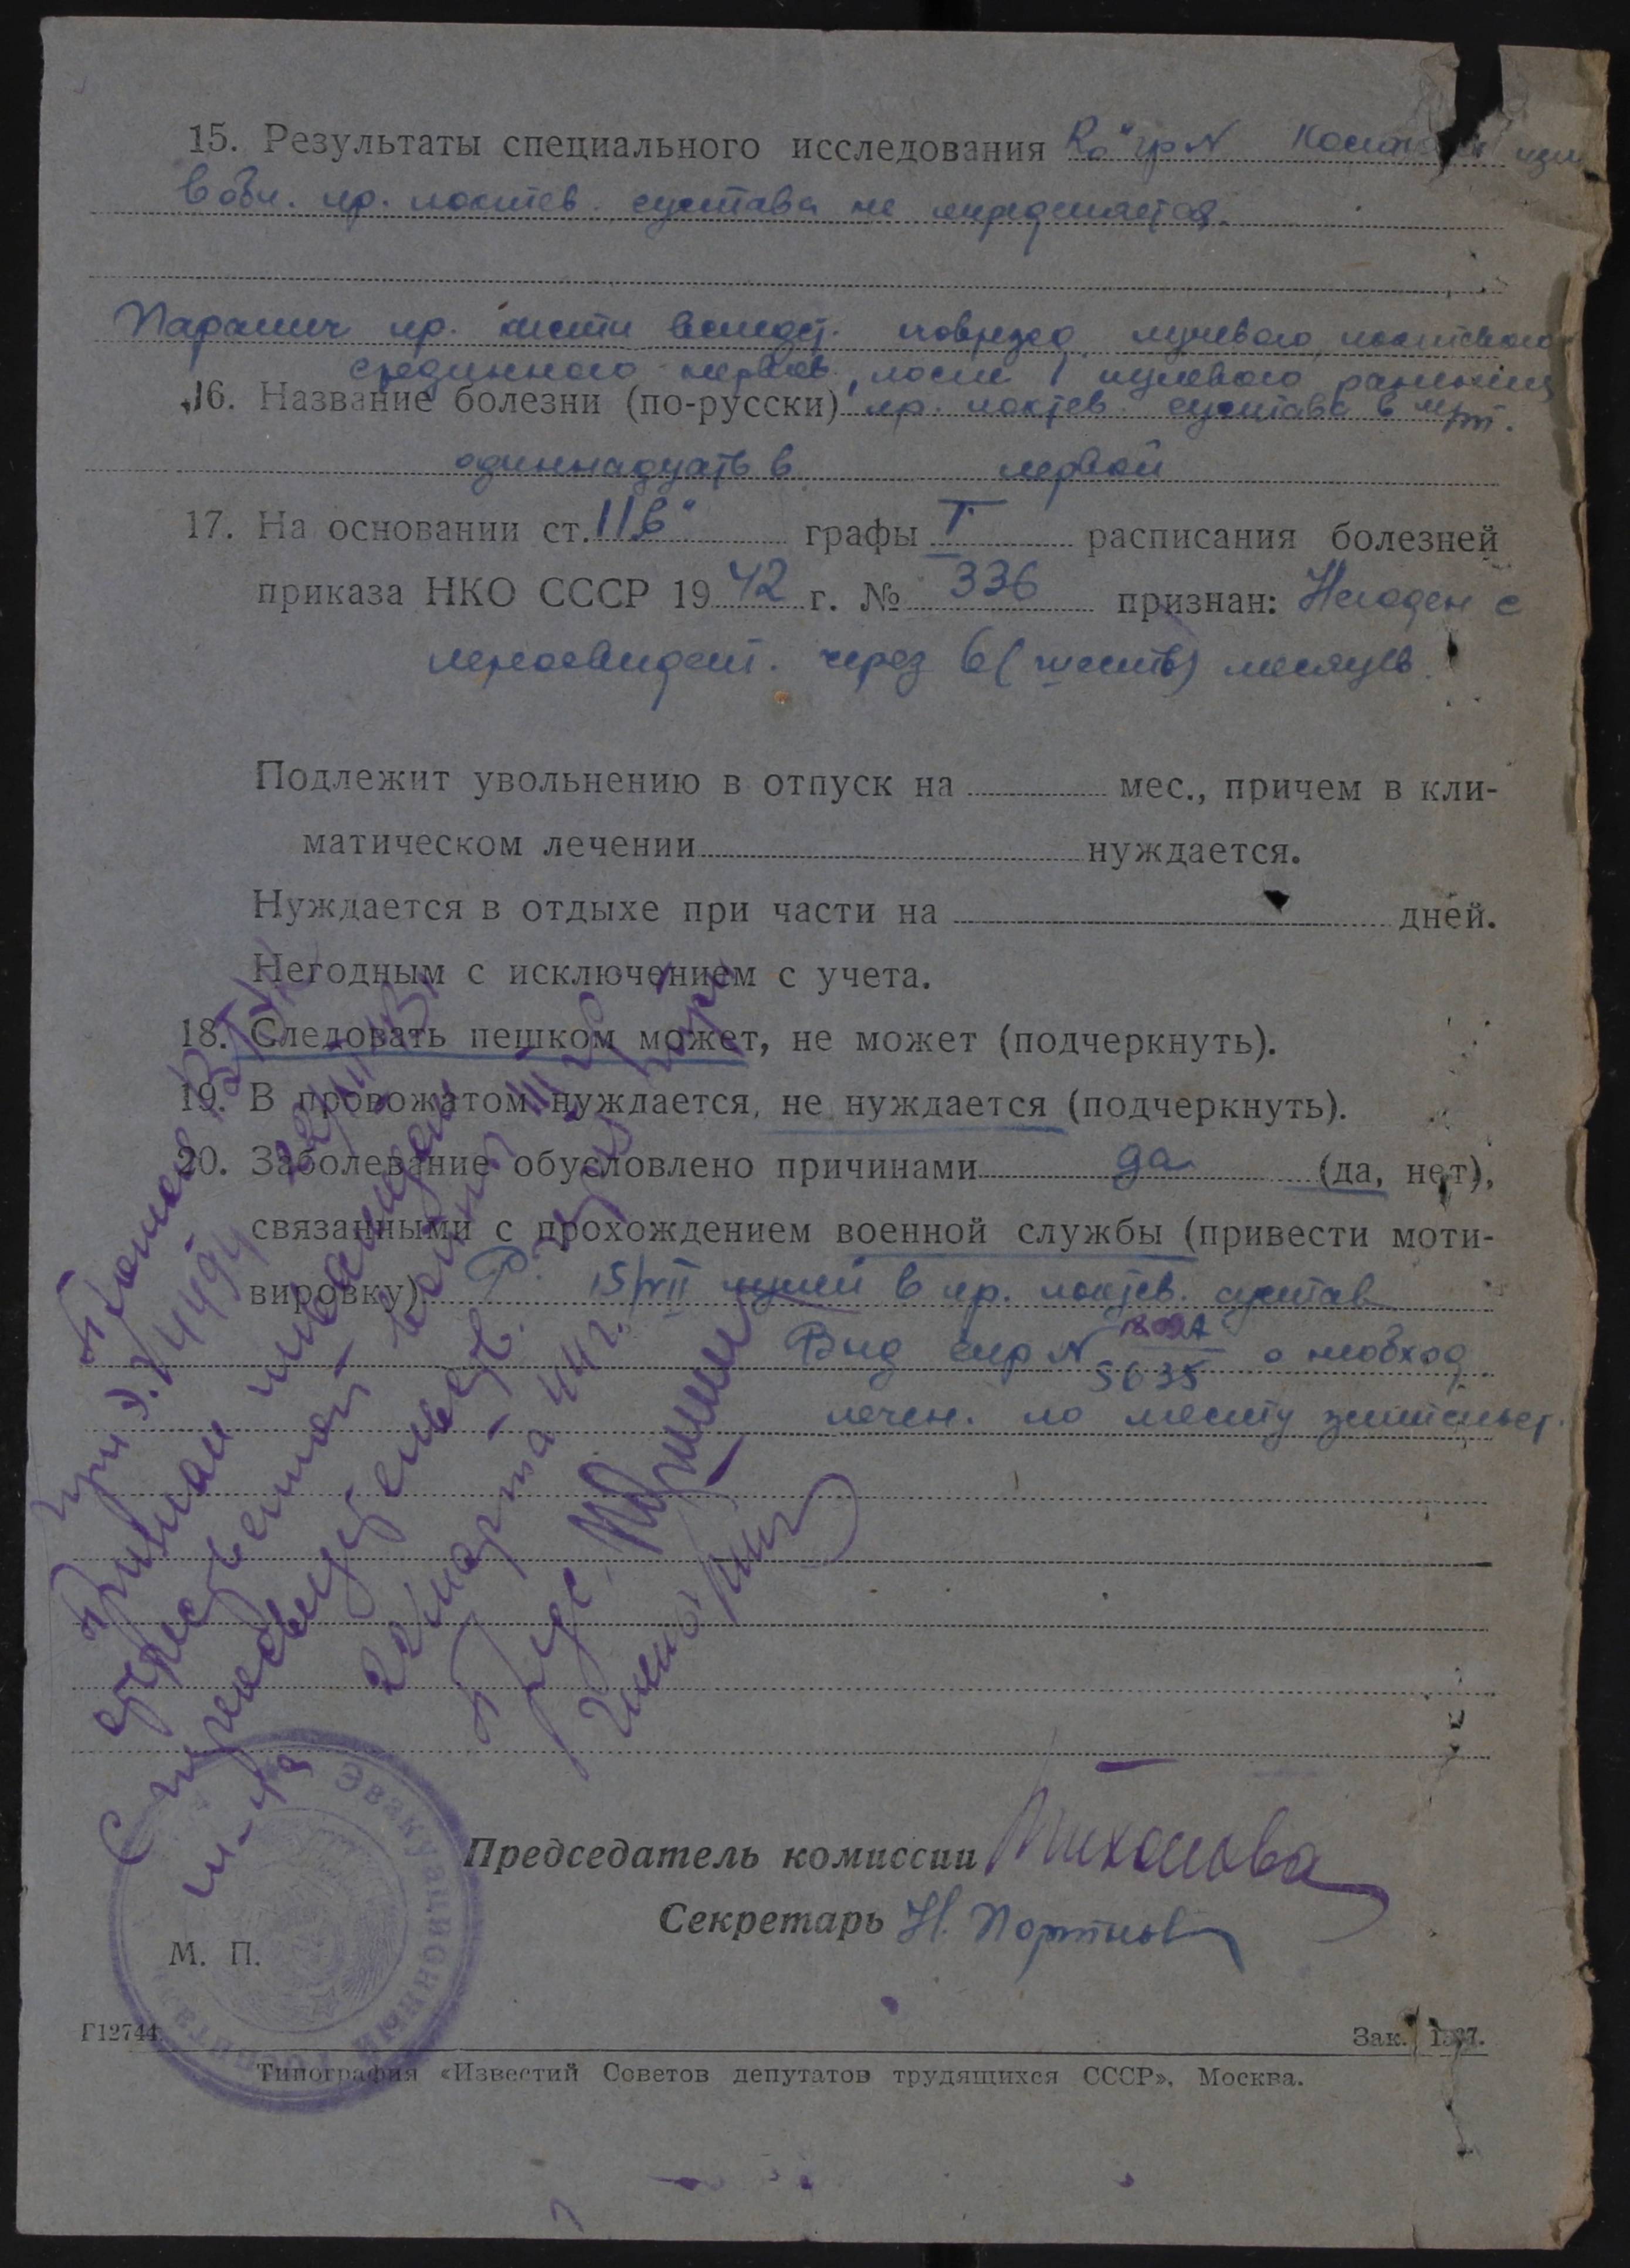 15. Результаты специального исследования Ro гр N Костных изм
в обл. пр. локтев. сустава не определяется.
Паралич пр. кисти вследст. повужд лучевого, локтевого
срединного нервов, после пулевого ранения
16. Название болезни (по-русски) пр. локтев. сустава в
одиннадцать в первой
17. На основании ст. 11в" графы I расписания болезней
приказа НКО СССР 1942 г. № 336 признан: Негоден с
переосвидет. через 6 (шесть) месяцев.
Подлежит увольнению в отпуск на мес., причем в кли-
матическом лечении нуждается.
Нуждается в отдыхе при части на дней.
Негодным с исключением с учета.
18. Следовать пешком может, не может (подчеркнуть).
19. В провожатом нуждается, не нуждается (подчеркнуть).
20. Заболевание обусловлено причинами да (да, нет),
связанными с прохождением военной службы (привести моти-
вировку) Р. 15/VII пулей в пр. локтев. сустав
Выд спр N 5635 о необход
лечен. по месту жительст.
Признан инвалидом
отечественной войны III
С переосвидетельств.
22 марта 44 г.
Председатель комиссии Тихонова
Секретарь Н. Портнов
М. П.
Эвакуационный госпиталь
Г12744. Зак. 1577.
Типография «Известий Советов депутатов трудящихся СССР», Москва.